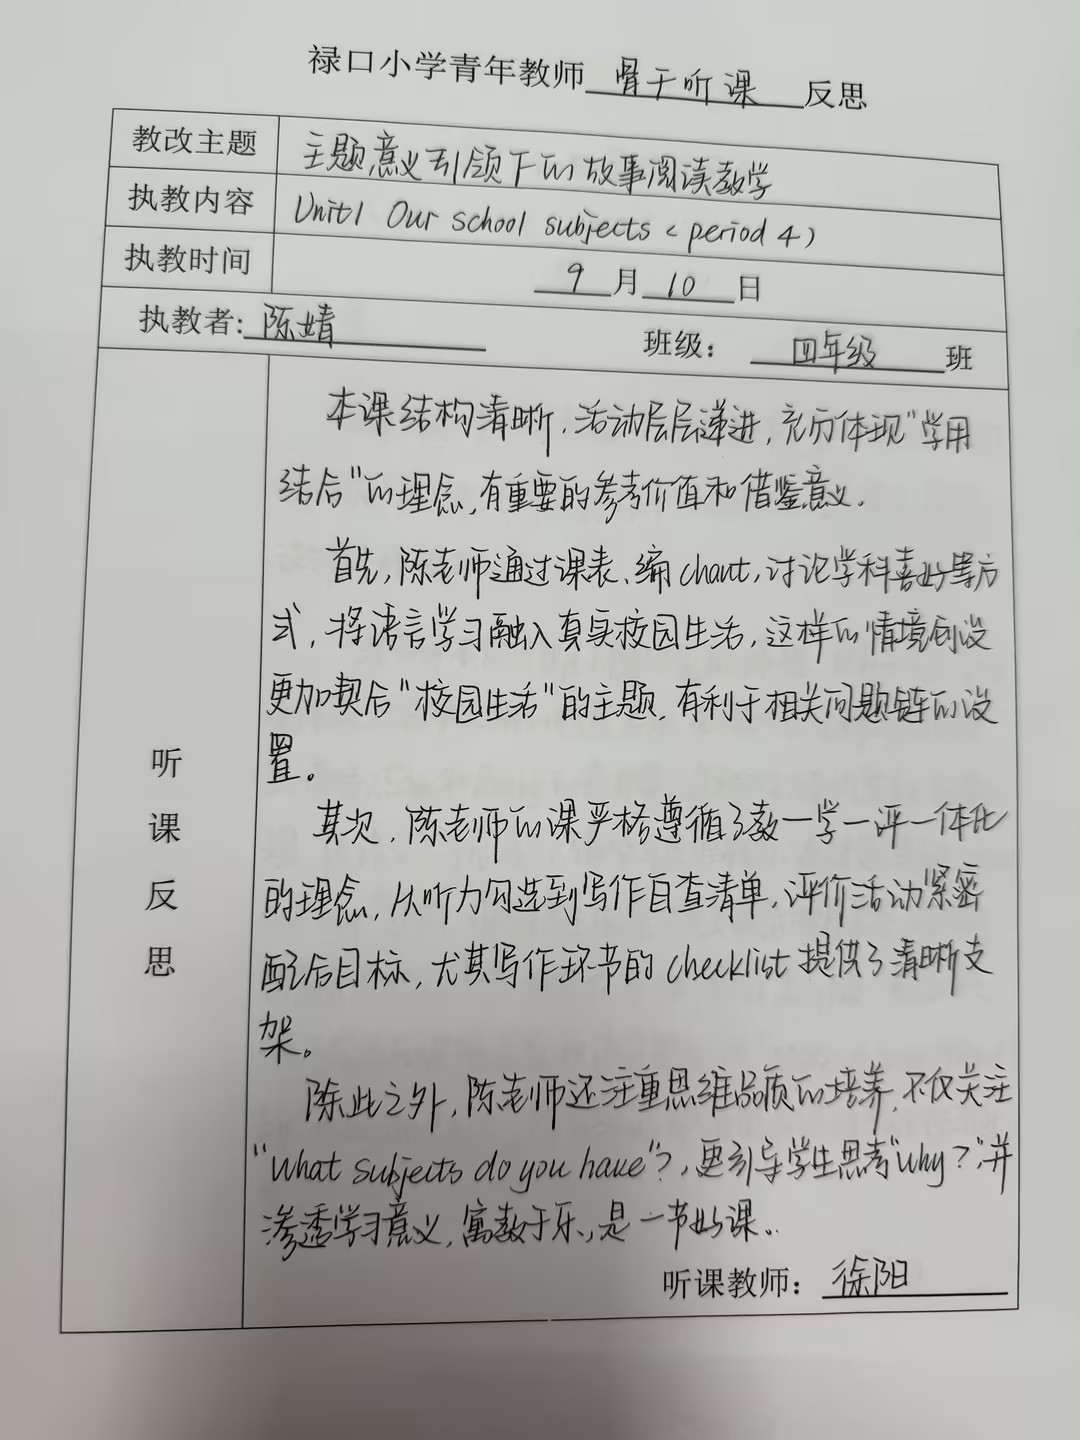 禄口小学青年教师 骨干听课 反思
教改主题 主题意义引领下的故事阅读教学
执教内容 Unit1 Our school subjects (period 4)
执教时间 9月10日
执教者: 陈婧 班级: 四年级 班
听课反思
本课结构清晰,活动层层递进,充分体现"学用
结合"的理念,有重要的参考价值和借鉴意义.
首先,陈老师通过课表、编chant,讨论学科喜好等方
式,将语言学习融入真实校园生活,这样的情境创设
更加契合"校园生活"的主题,有利于相关问题链的设
置。
其次,陈老师的课严格遵循了教一学一评一体化
的理念,从听力勾选到写作自查清单,评价活动紧密
配合目标,尤其写作环节的checklist提供了清晰支
架。
除此之外,陈老师还注重思维品质的培养,不仅关注
"What subjects do you have"?,更引导学生思考"why?",并
渗透学习意义,寓教于乐,是一节好课.
听课教师: 徐阳